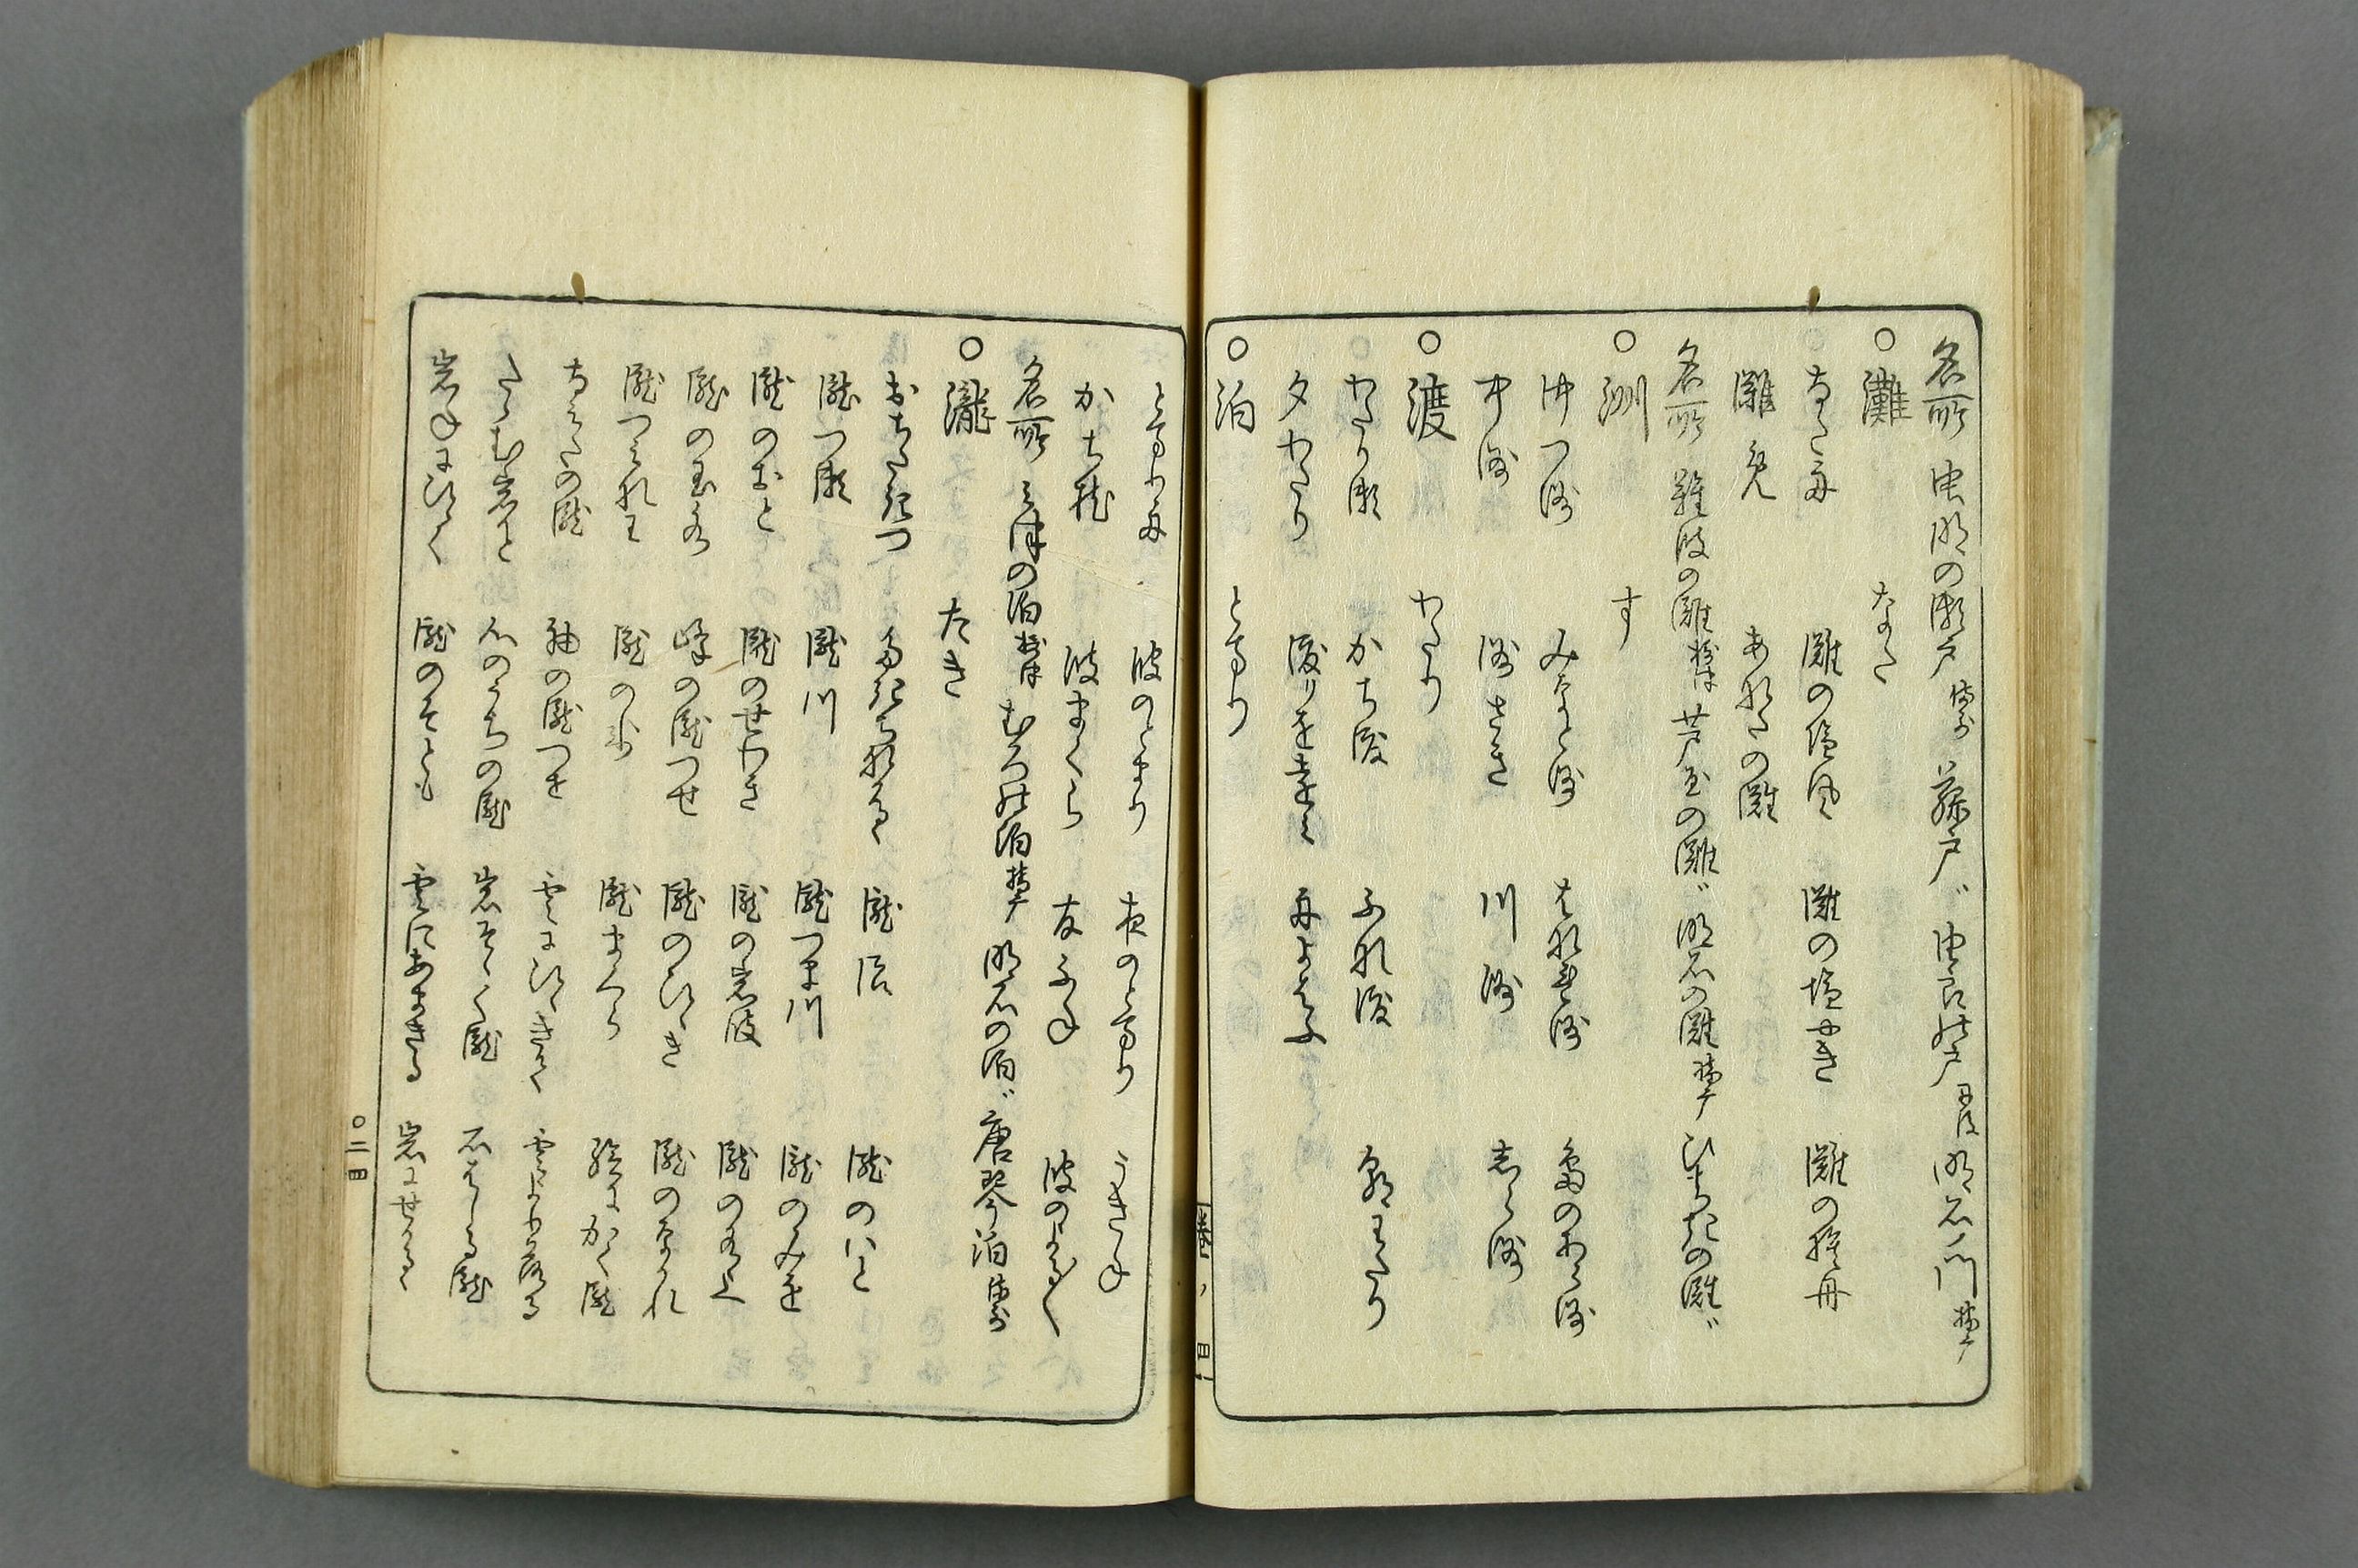 名所 虫明の瀬戸 備前 藤戸 〃 由良の戸 丹後 明石門 播ー
○灘 なだ
なだ舟 灘の塩風 灘の塩やき 灘の捨舟
灘 あれたの灘
名所 難波の灘 摂津 芦屋の灘 〃 明石の灘 播ー ひゞきの灘 〃
○洲 す
沖つ洲 みなと洲 はなれ洲 島のあら洲
中洲 洲さき 川洲 しら洲
○渡 わたり
わたり瀬 かち渡 ふね渡 朝わたり
夕わたり 渡りを遠み 舟よばふ
○泊 とまり
とまり舟 波のとまり 夜のとまり うきね
かち枕 波まくら 友ふね 波のよる〳〵
名所 三津の泊 摂津 むろの泊 播ー 明石の泊 〃 唐琴泊 備前
○瀧 たき
おちたぎつ たぎちながるゝ 瀧 瀧のいと
瀧つ瀬 瀧川 瀧つま川 瀧のみを
瀧のおと 瀧のせわき 瀧の岩波 瀧の
瀧の玉水 峰の瀧つせ 瀧のひゞき 瀧のながれ
瀧つながれ 瀧の糸 瀧まくら 絵にかく瀧
なみだの瀧 袖の瀧つせ 雲にひゞきて 雲より落る
たゝむ岩と 心のうちの瀧 岩そゝぐ瀧 石ばしる瀧
岩ねにひゞく 瀧のそとも 雲にあまぎる 岩にせかるゝ
巻ノ四
○二四